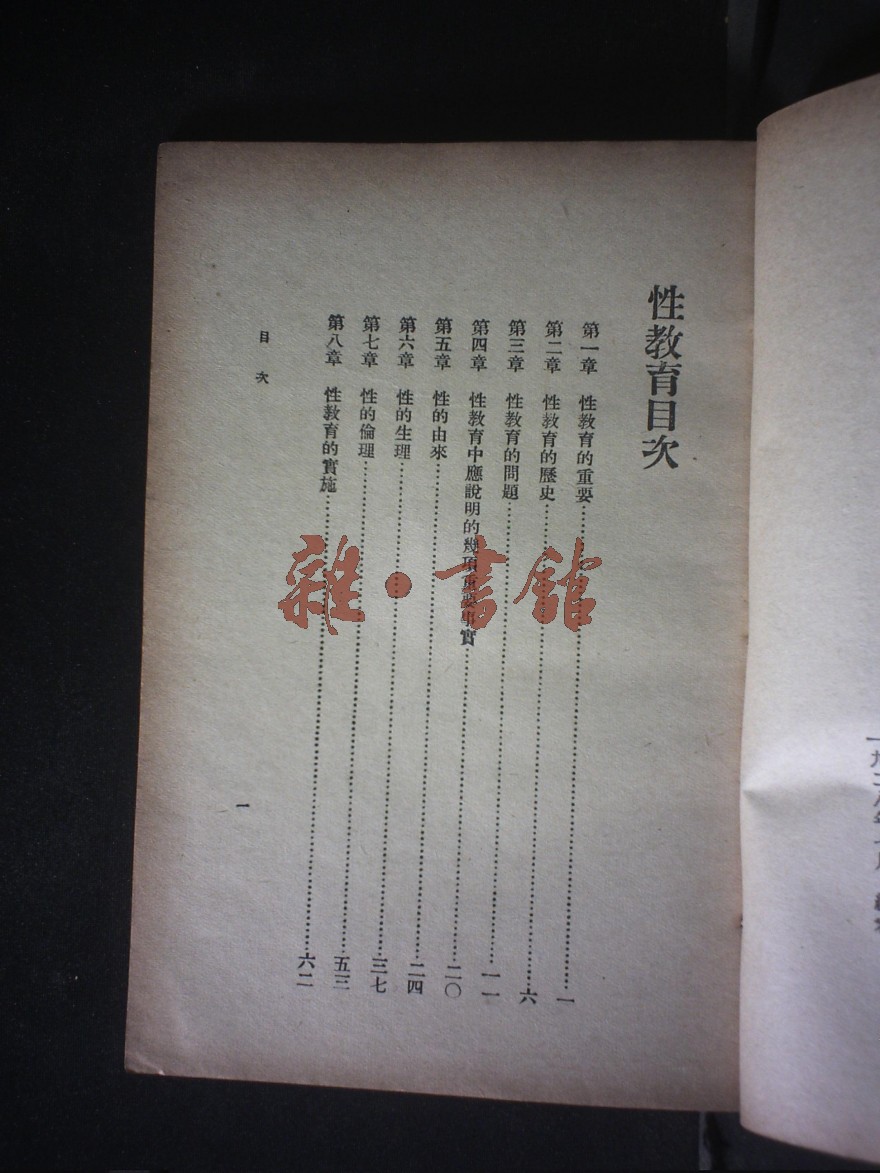 性教育目次
第一章 性教育的重要……一
第二章 性教育的歷史……六
第三章 性教育的問題……一一
第四章 性教育中應說明的幾項重要事實……二〇
第五章 性的由來……二四
第六章 性的生理……三七
第七章 性的倫理……五三
第八章 性教育的實施……六二
目次
一
雜·書館